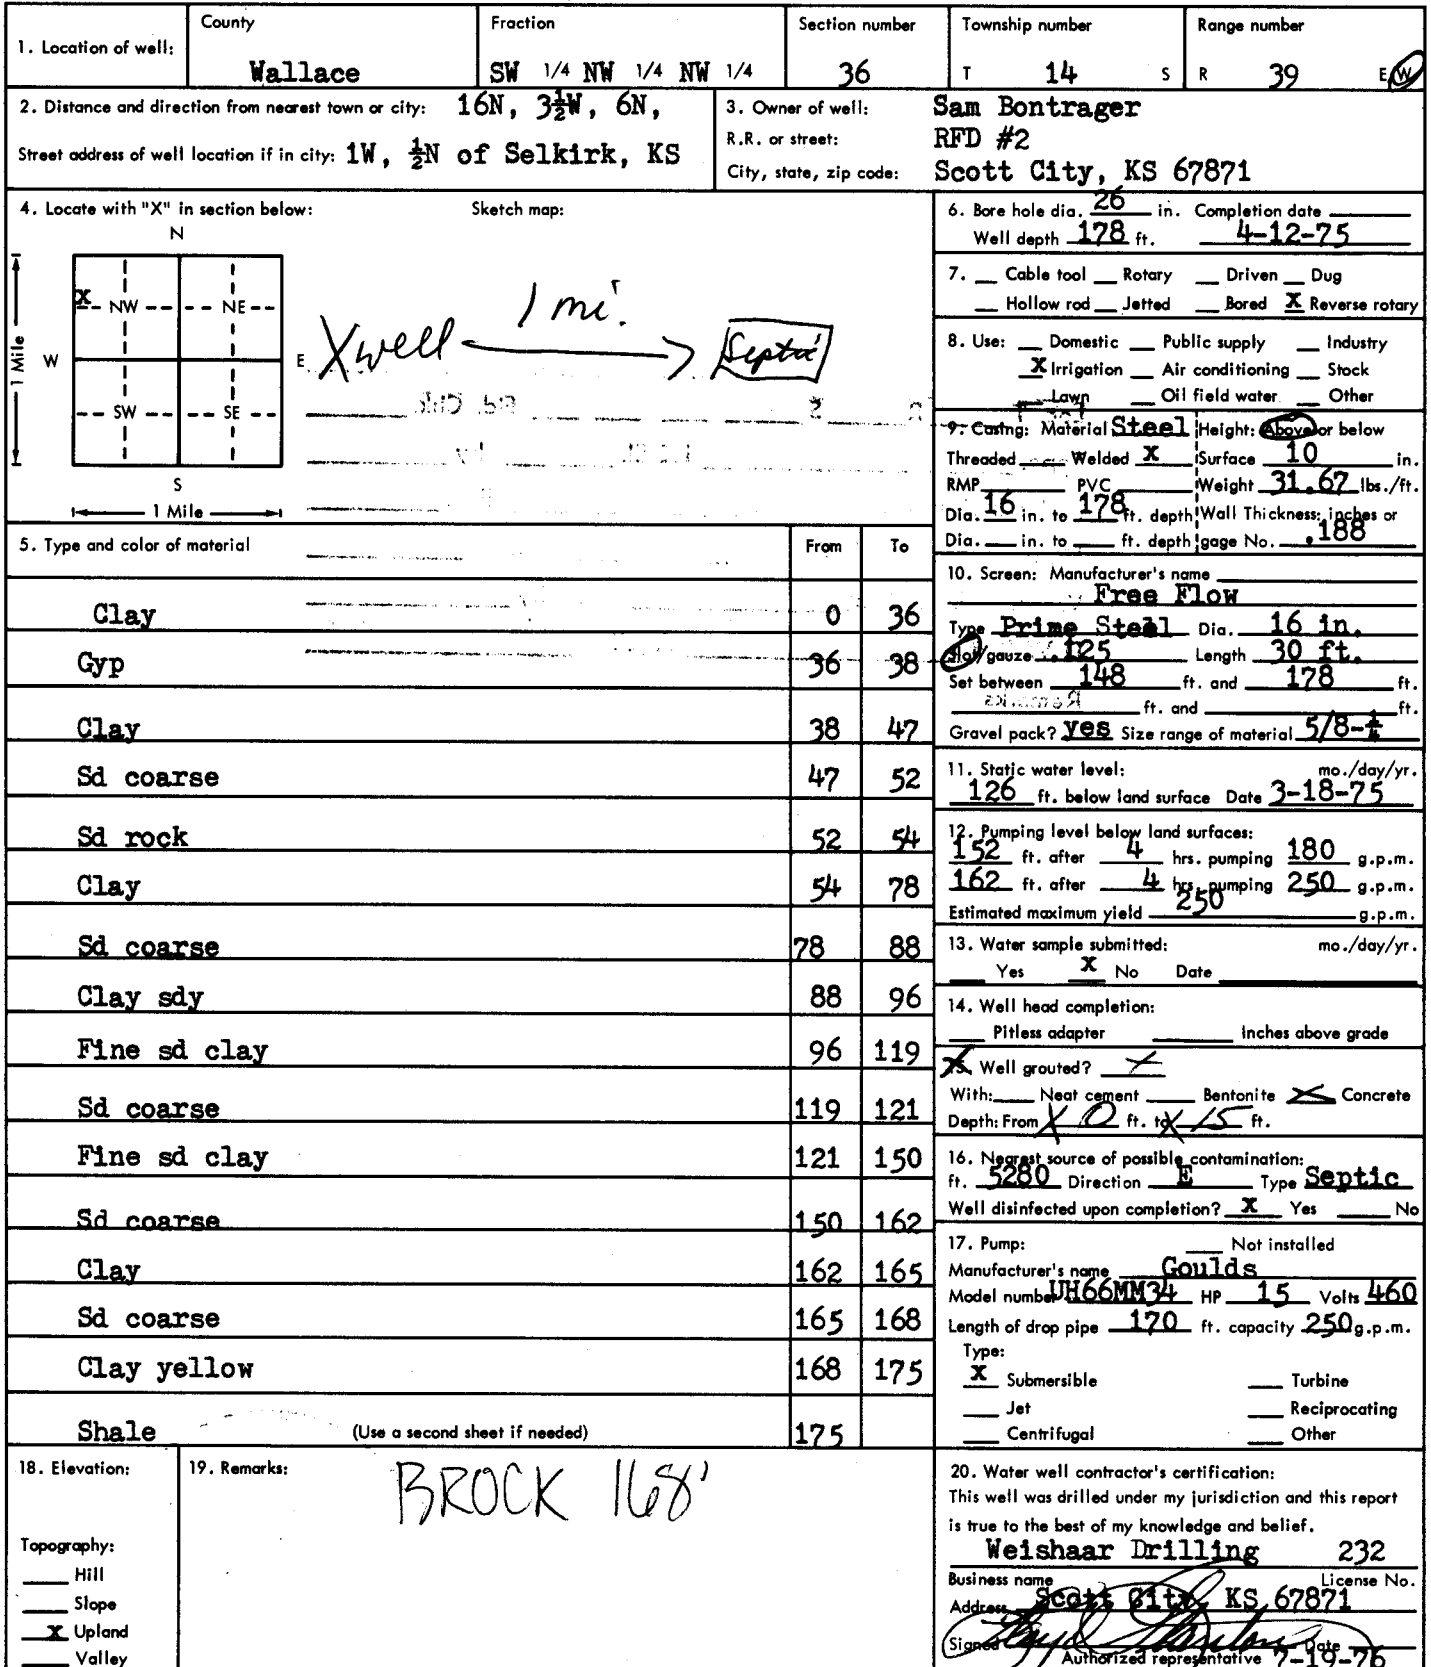 1. Location of well:
County
Wallace
Fraction
SW 1/4 NW 1/4 NW 1/4
Section number
36
Township number
T 14 S
Range number
R 39 E W
2. Distance and direction from nearest town or city: 16N, 3½W, 6N,
Street address of well location if in city: 1W, ½N of Selkirk, KS
3. Owner of well: Sam Bontrager
R.R. or street: RFD #2
City, state, zip code: Scott City, KS 67871
4. Locate with "X" in section below:
Sketch map:
N
X
NW NE
W E
SW SE
S
1 Mile
1 Mile
X well 1 mi. Septic
5. Type and color of material From To
Clay 0 36
Gyp 36 38
Clay 38 47
Sd coarse 47 52
Sd rock 52 54
Clay 54 78
Sd coarse 78 88
Clay sdy 88 96
Fine sd clay 96 119
Sd coarse 119 121
Fine sd clay 121 150
Sd coarse 150 162
Clay 162 165
Sd coarse 165 168
Clay yellow 168 175
Shale (Use a second sheet if needed) 175
6. Bore hole dia. 26 in. Completion date
Well depth 178 ft. 4-12-75
7. Cable tool Rotary Driven Dug
Hollow rod Jetted Bored X Reverse rotary
8. Use: Domestic Public supply Industry
X Irrigation Air conditioning Stock
Lawn Oil field water Other
9. Casing: Material Steel Height: Above or below
Threaded Welded X Surface 10 in.
RMP PVC Weight 31.67 lbs./ft.
Dia. 16 in. to 178 ft. depth Wall Thickness: inches or
Dia. in. to ft. depth gage No. .188
10. Screen: Manufacturer's name
Free Flow
Type Prime Steel Dia. 16 in.
Slot/gauze .125 Length 30 ft.
Set between 148 ft. and 178 ft.
ft. and ft.
Gravel pack? yes Size range of material 5/8-¼
11. Static water level: mo./day/yr.
126 ft. below land surface Date 3-18-75
12. Pumping level below land surfaces:
152 ft. after 4 hrs. pumping 180 g.p.m.
162 ft. after 4 hrs. pumping 250 g.p.m.
Estimated maximum yield 250 g.p.m.
13. Water sample submitted: mo./day/yr.
Yes X No Date
14. Well head completion:
Pitless adapter Inches above grade
15. Well grouted? X
With: Neat cement Bentonite X Concrete
Depth: From X 0 ft. to X 15 ft.
16. Nearest source of possible contamination:
ft. 5280 Direction E Type Septic
Well disinfected upon completion? X Yes No
17. Pump: Not installed
Manufacturer's name Goulds
Model number UH66MM34 HP 15 Volts 460
Length of drop pipe 170 ft. capacity 250 g.p.m.
Type:
X Submersible Turbine
Jet Reciprocating
Centrifugal Other
18. Elevation:
Topography:
Hill
Slope
X Upland
Valley
19. Remarks:
BROCK 168'
20. Water well contractor's certification:
This well was drilled under my jurisdiction and this report
is true to the best of my knowledge and belief.
Weishaar Drilling 232
Business name License No.
Address Scott City, KS 67871
Signed Date
Authorized representative 7-19-76